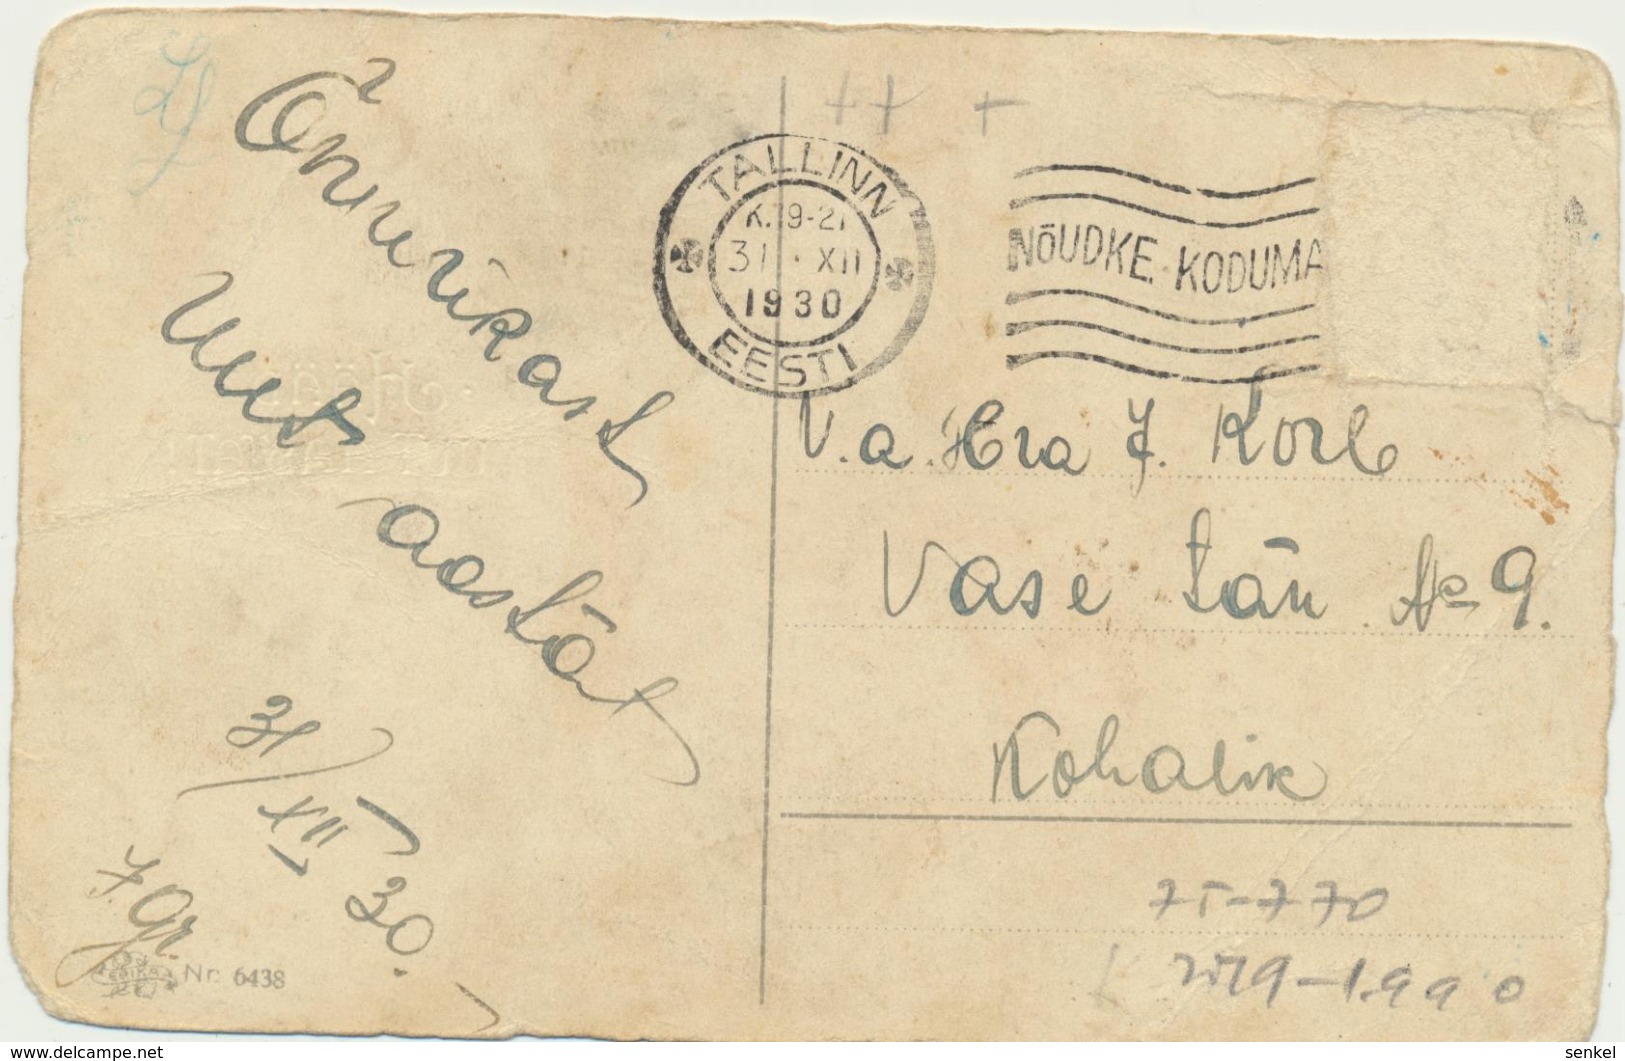 Õnnerikast
Uut aastat
31/XII 30.
J. Gr.
Nr. 6438
TALLINN
K. 19-21
31 . XII
1930
EESTI
NÕUDKE KODUMA
V. a. Hra J. Korb
Vase tän № 9.
Kohalik
75-770
1990
https://www.delcampe.net
senkel